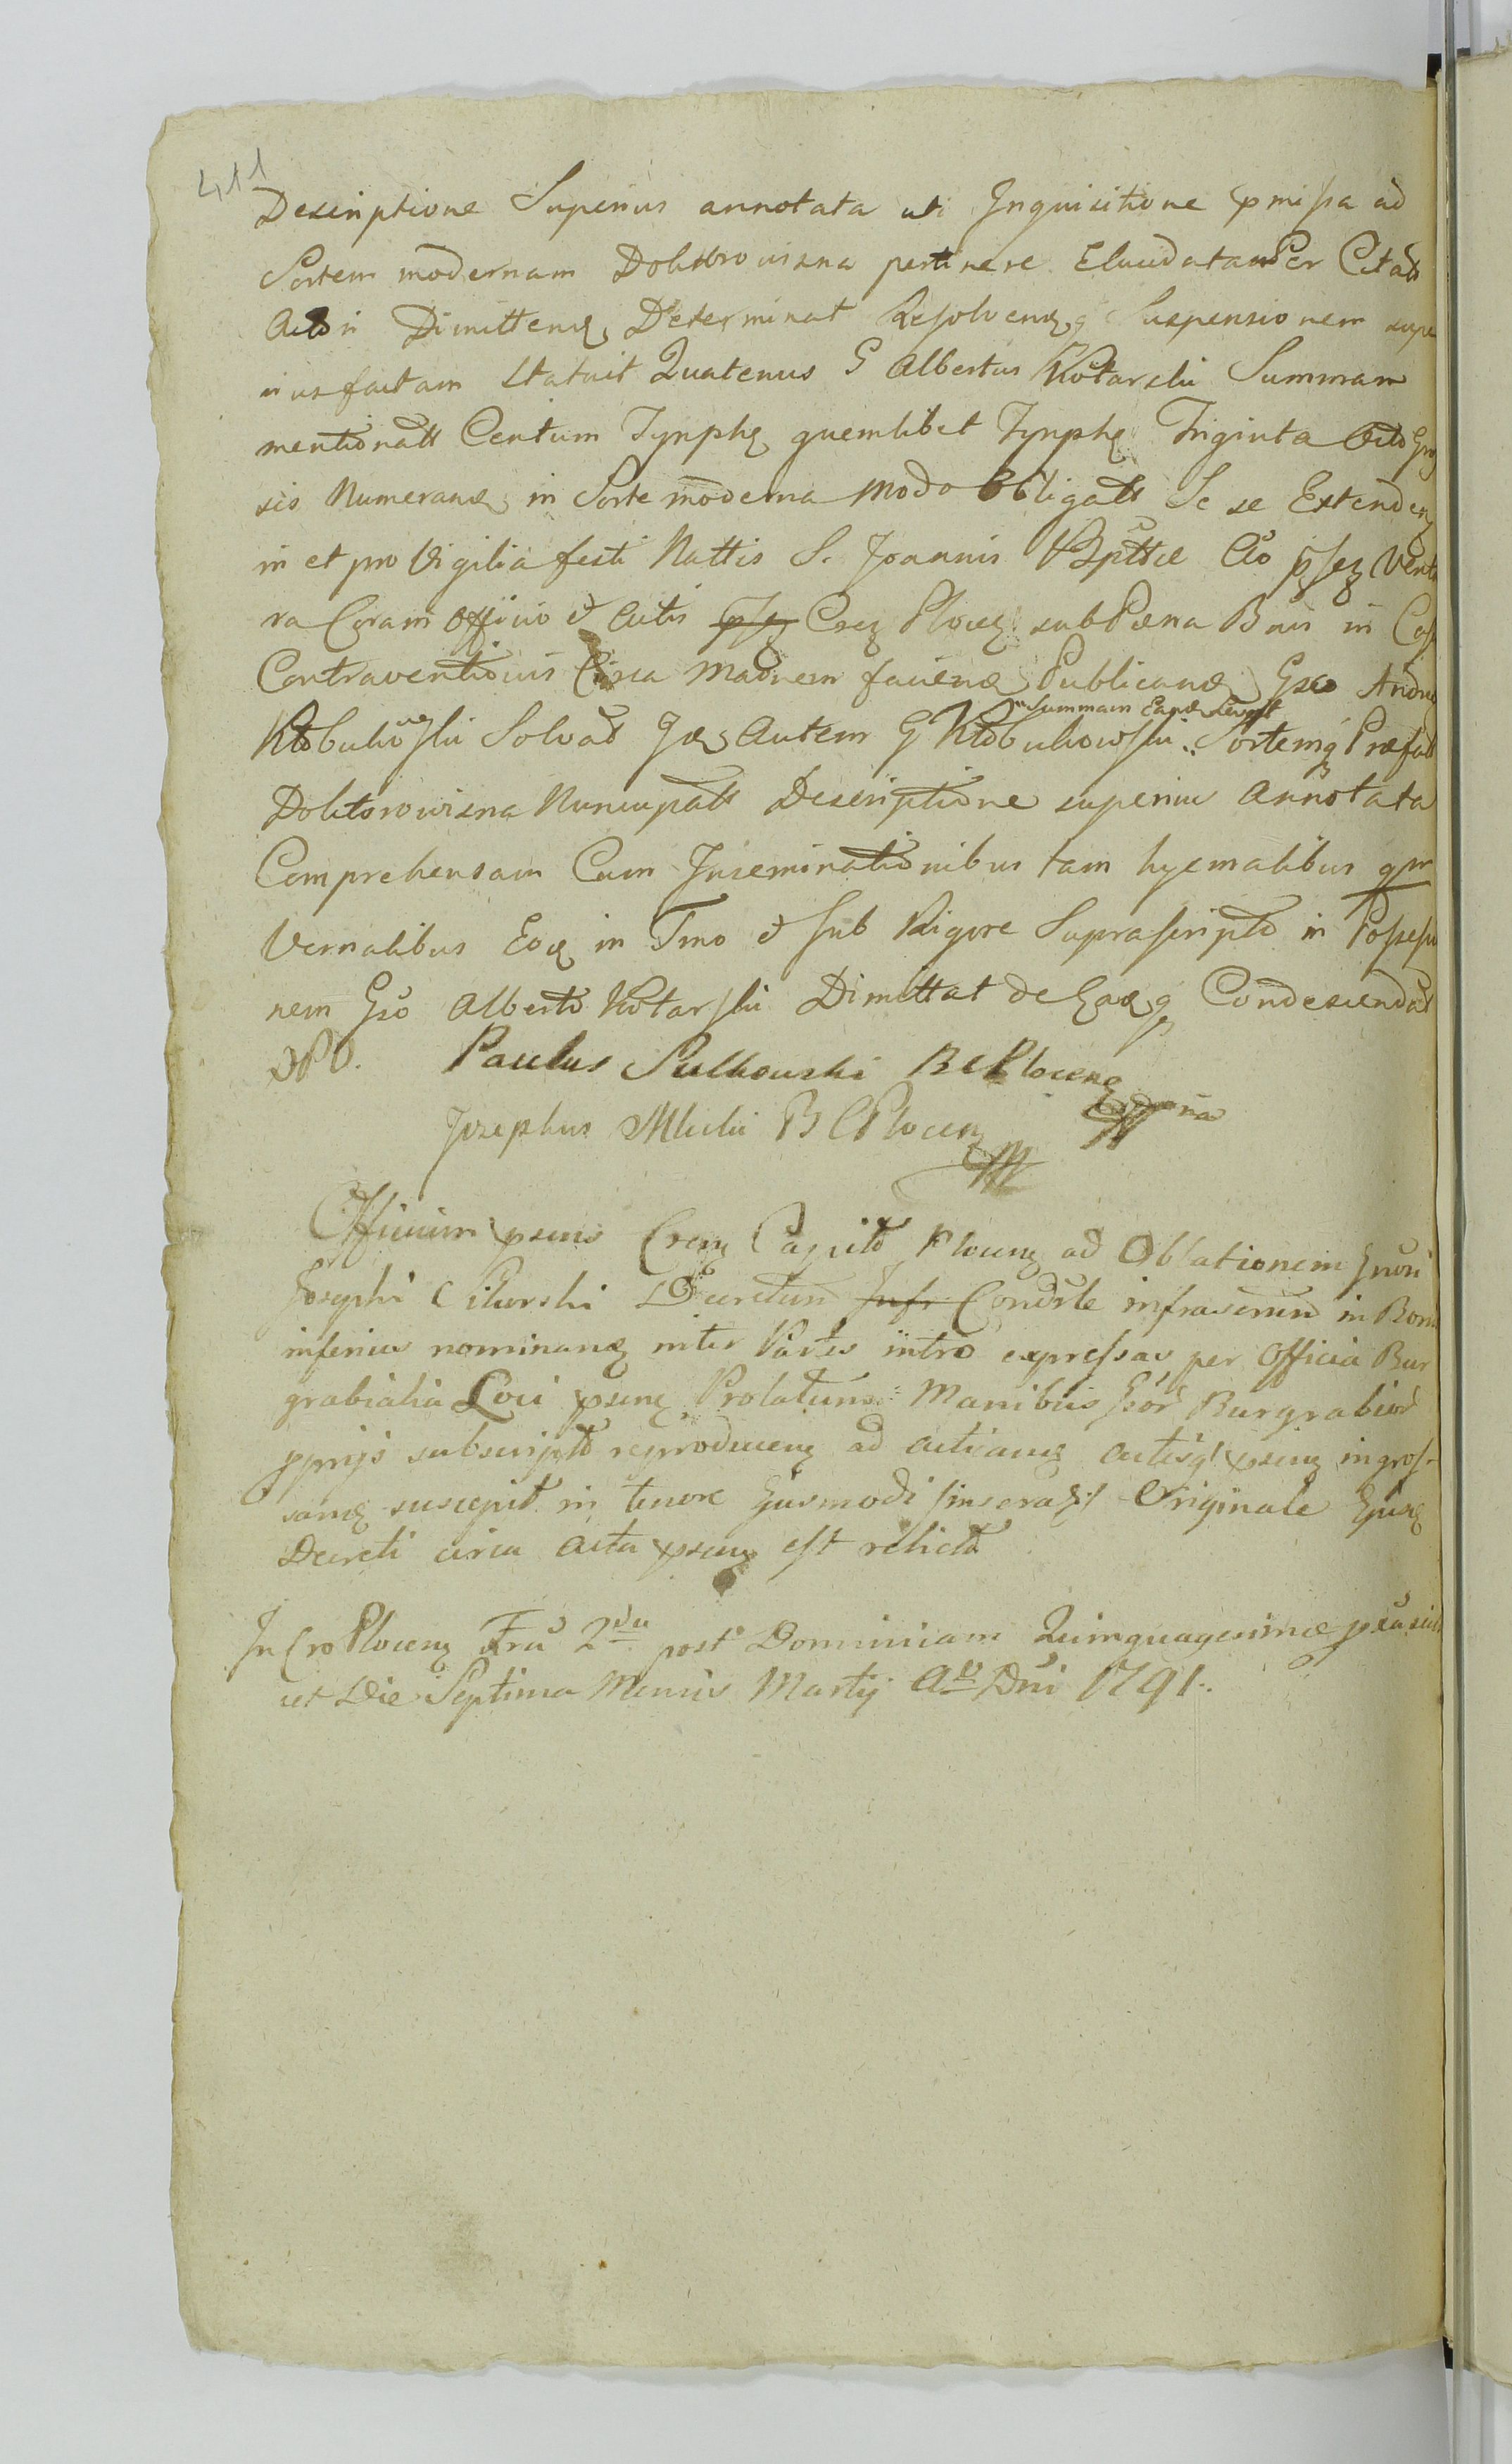 411
Descriptione Superius annotata uti Inquisitione pmissa ad
Sortem modernam Dolittrowizna pertinere Elucidatam Per Citatt
Actori Dimittenꝫ Determinat Resolvenꝫq Suspensionem supe
rius factam Statuit Quatenus G Albertus Kotarski Summam
mentionatt Centum Tynphꝫ quemlibet Tynphꝫ Triginta Octo Gros
sis Numerandꝫ in Sorte moderna modo Obligatt Se se Extendenꝫ
in et pro Vigilia festi Nattis S. Joannis Bpttae Ao psꝫ Ventu
ra Coram Officio et Actis Crꝫ Plocꝫ sub Paena Bnis in Cas
Contraventionis Circa Madnem faciendꝫ Publicandꝫ Gso Andrea
"Summam Eandꝫ levast
Kłobukowski Solvat Idꝫ Autem G Kłobukowski :. Sortemq Praefatt
Dolitorowizna Nuncupatt Descriptione superius Annotata
Comprehensam Cum Inseminationibus tam hyemalibus qm
Vernalibus Eoꝫ in Tmo et sub Rigore Suprascripto in Possessio
nem Gso Alberto Kotarski Dimittat de Eadꝫq Condescendat
DPD. Paulus Sulkowski BCPlocenꝫ
Josephus Mlicki BCPlocenꝫ
Officium psens Crenꝫ Capitt Plocenꝫ ad Oblationem Gnosi
Josephi Ciborski Decretum Infr Condrle infrascriptt in Bonis
inferius nominanꝫ inter Partes intro expressas per Officia Bur
grabialia Loci psenꝫ Prolatum Manibus Gsor Burgrabior
pprijs subscriptt reproducenꝫ ad acticanꝫ actisq psenꝫ ingros-
sanꝫ suscepit in tenore Ejusmodi /inseratꝫ:/ Originale Ejusdꝫ
Decreti circa Acta psenꝫ est relictt
In Cro Plocenꝫ Fria 2da post Dominicam Quinquagesimae pxa scil
cet Die Septima Mensis Martij Ao Dni 1791.